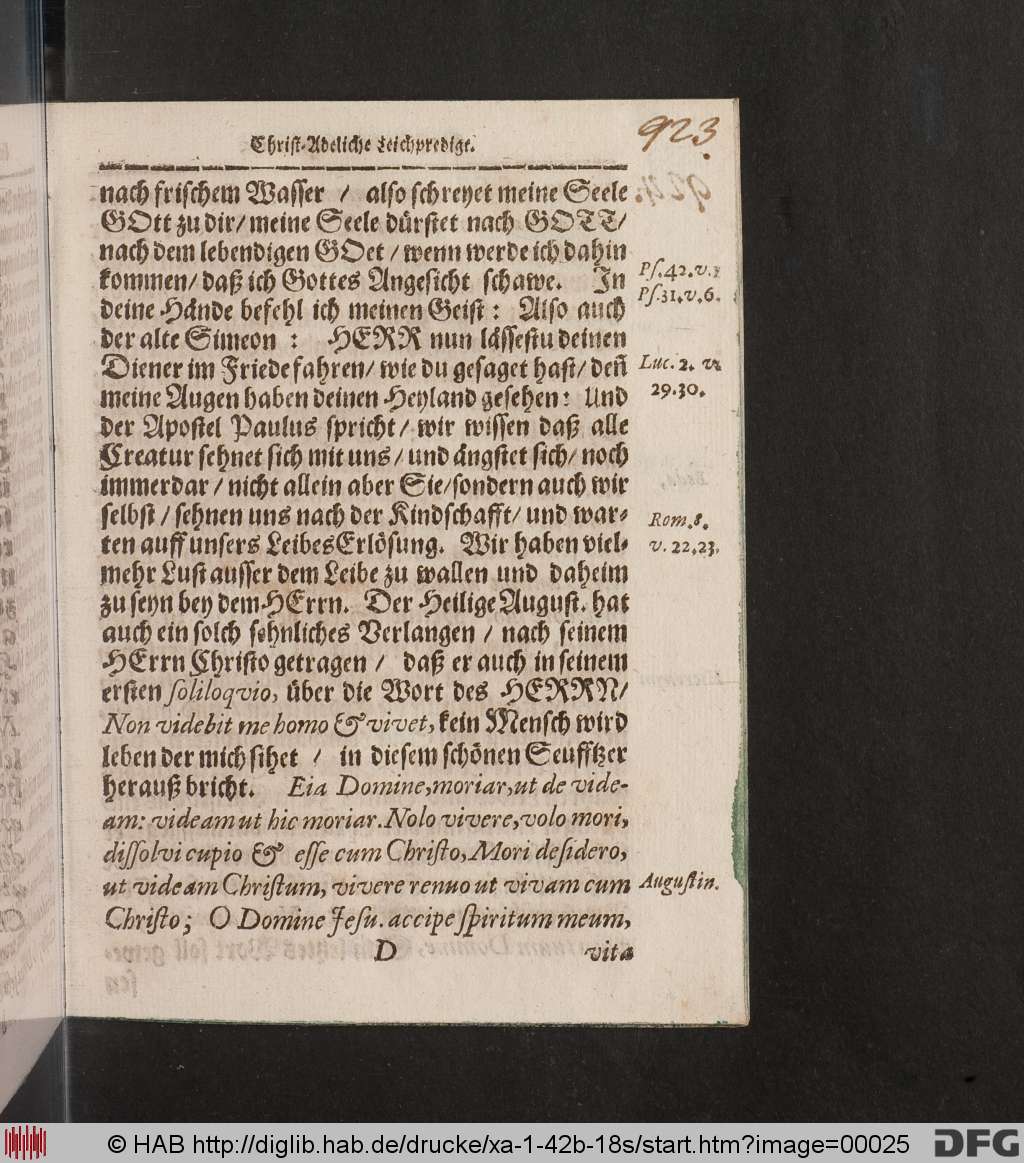 Christ-Adeliche Leichpredigt.
923.
nach frischem Wasser / also schreyet meine Seele
GOtt zu dir / meine Seele dürstet nach GOTT /
nach dem lebendigen GOet / wenn werde ich dahin
kommen / daß ich Gottes Angesicht schawe. In
Ps. 42. v. 3
deine Hände befehl ich meinen Geist: Also auch
Ps. 31. v. 6.
der alte Simeon: HERR nun lässestu deinen
Diener im Friede fahren / wie du gesaget hast / deñ
Luc. 2. v.
meine Augen haben deinen Heyland gesehen: Und
29. 30.
der Apostel Paulus spricht / wir wissen daß alle
Creatur sehnet sich mit uns / und ängstet sich / noch
immerdar / nicht allein aber Sie / sondern auch wir
selbst / sehnen uns nach der Kindschafft / und war-
Rom. 8.
ten auff unsers Leibes Erlösung. Wir haben viel-
v. 22. 23.
mehr Lust ausser dem Leibe zu wallen und daheim
zu seyn bey dem HErrn. Der Heilige August. hat
auch ein solch sehnliches Verlangen / nach seinem
HErrn Christo getragen / daß er auch in seinem
ersten soliloqvio, über die Wort des HERRN /
Non videbit me homo & vivet, kein Mensch wird
leben der mich sihet / in diesem schönen Seufftzer
herauß bricht. Eia Domine, moriar, ut de vide-
am: videam ut hic moriar. Nolo vivere, volo mori,
dissolvi cupio & esse cum Christo, Mori desidero,
ut videam Christum, vivere renuo ut vivam cum
Augustin.
Christo; O Domine Jesu. accipe spiritum meum,
D vita
© HAB http://diglib.hab.de/drucke/xa-1-42b-18s/start.htm?image=00025
DFG